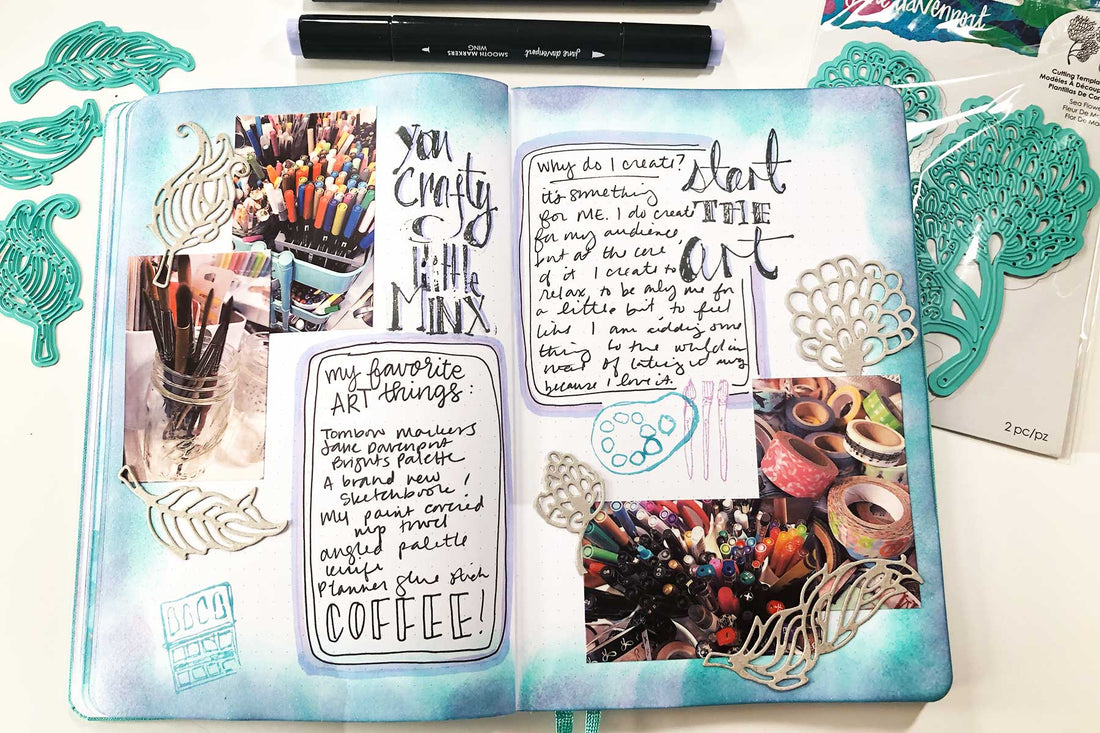 jane davenport
SMOOTH MARKERS
WING
jane davenport
Cutting Templa
Modèles À Découp
Plantillas De Cor
Sea Flowe
Fleur De M
Flor De Ma
2 pc/pz
you
Crafty
little
MINX.
my favorite
ART things:
Tombow markers
Jane Davenport
Brights Palette
A brand new
sketchbook!
My paint covered
mop towel
angled palette
knife
Planner glue stick
COFFEE!
why do I create?
it's something
for ME. I do create
for my audience,
but at the core
of it I create to
relax, to be only me for
a little bit, to feel
like I am adding some
thing to the world in
of
because I love it.
start
THE
art